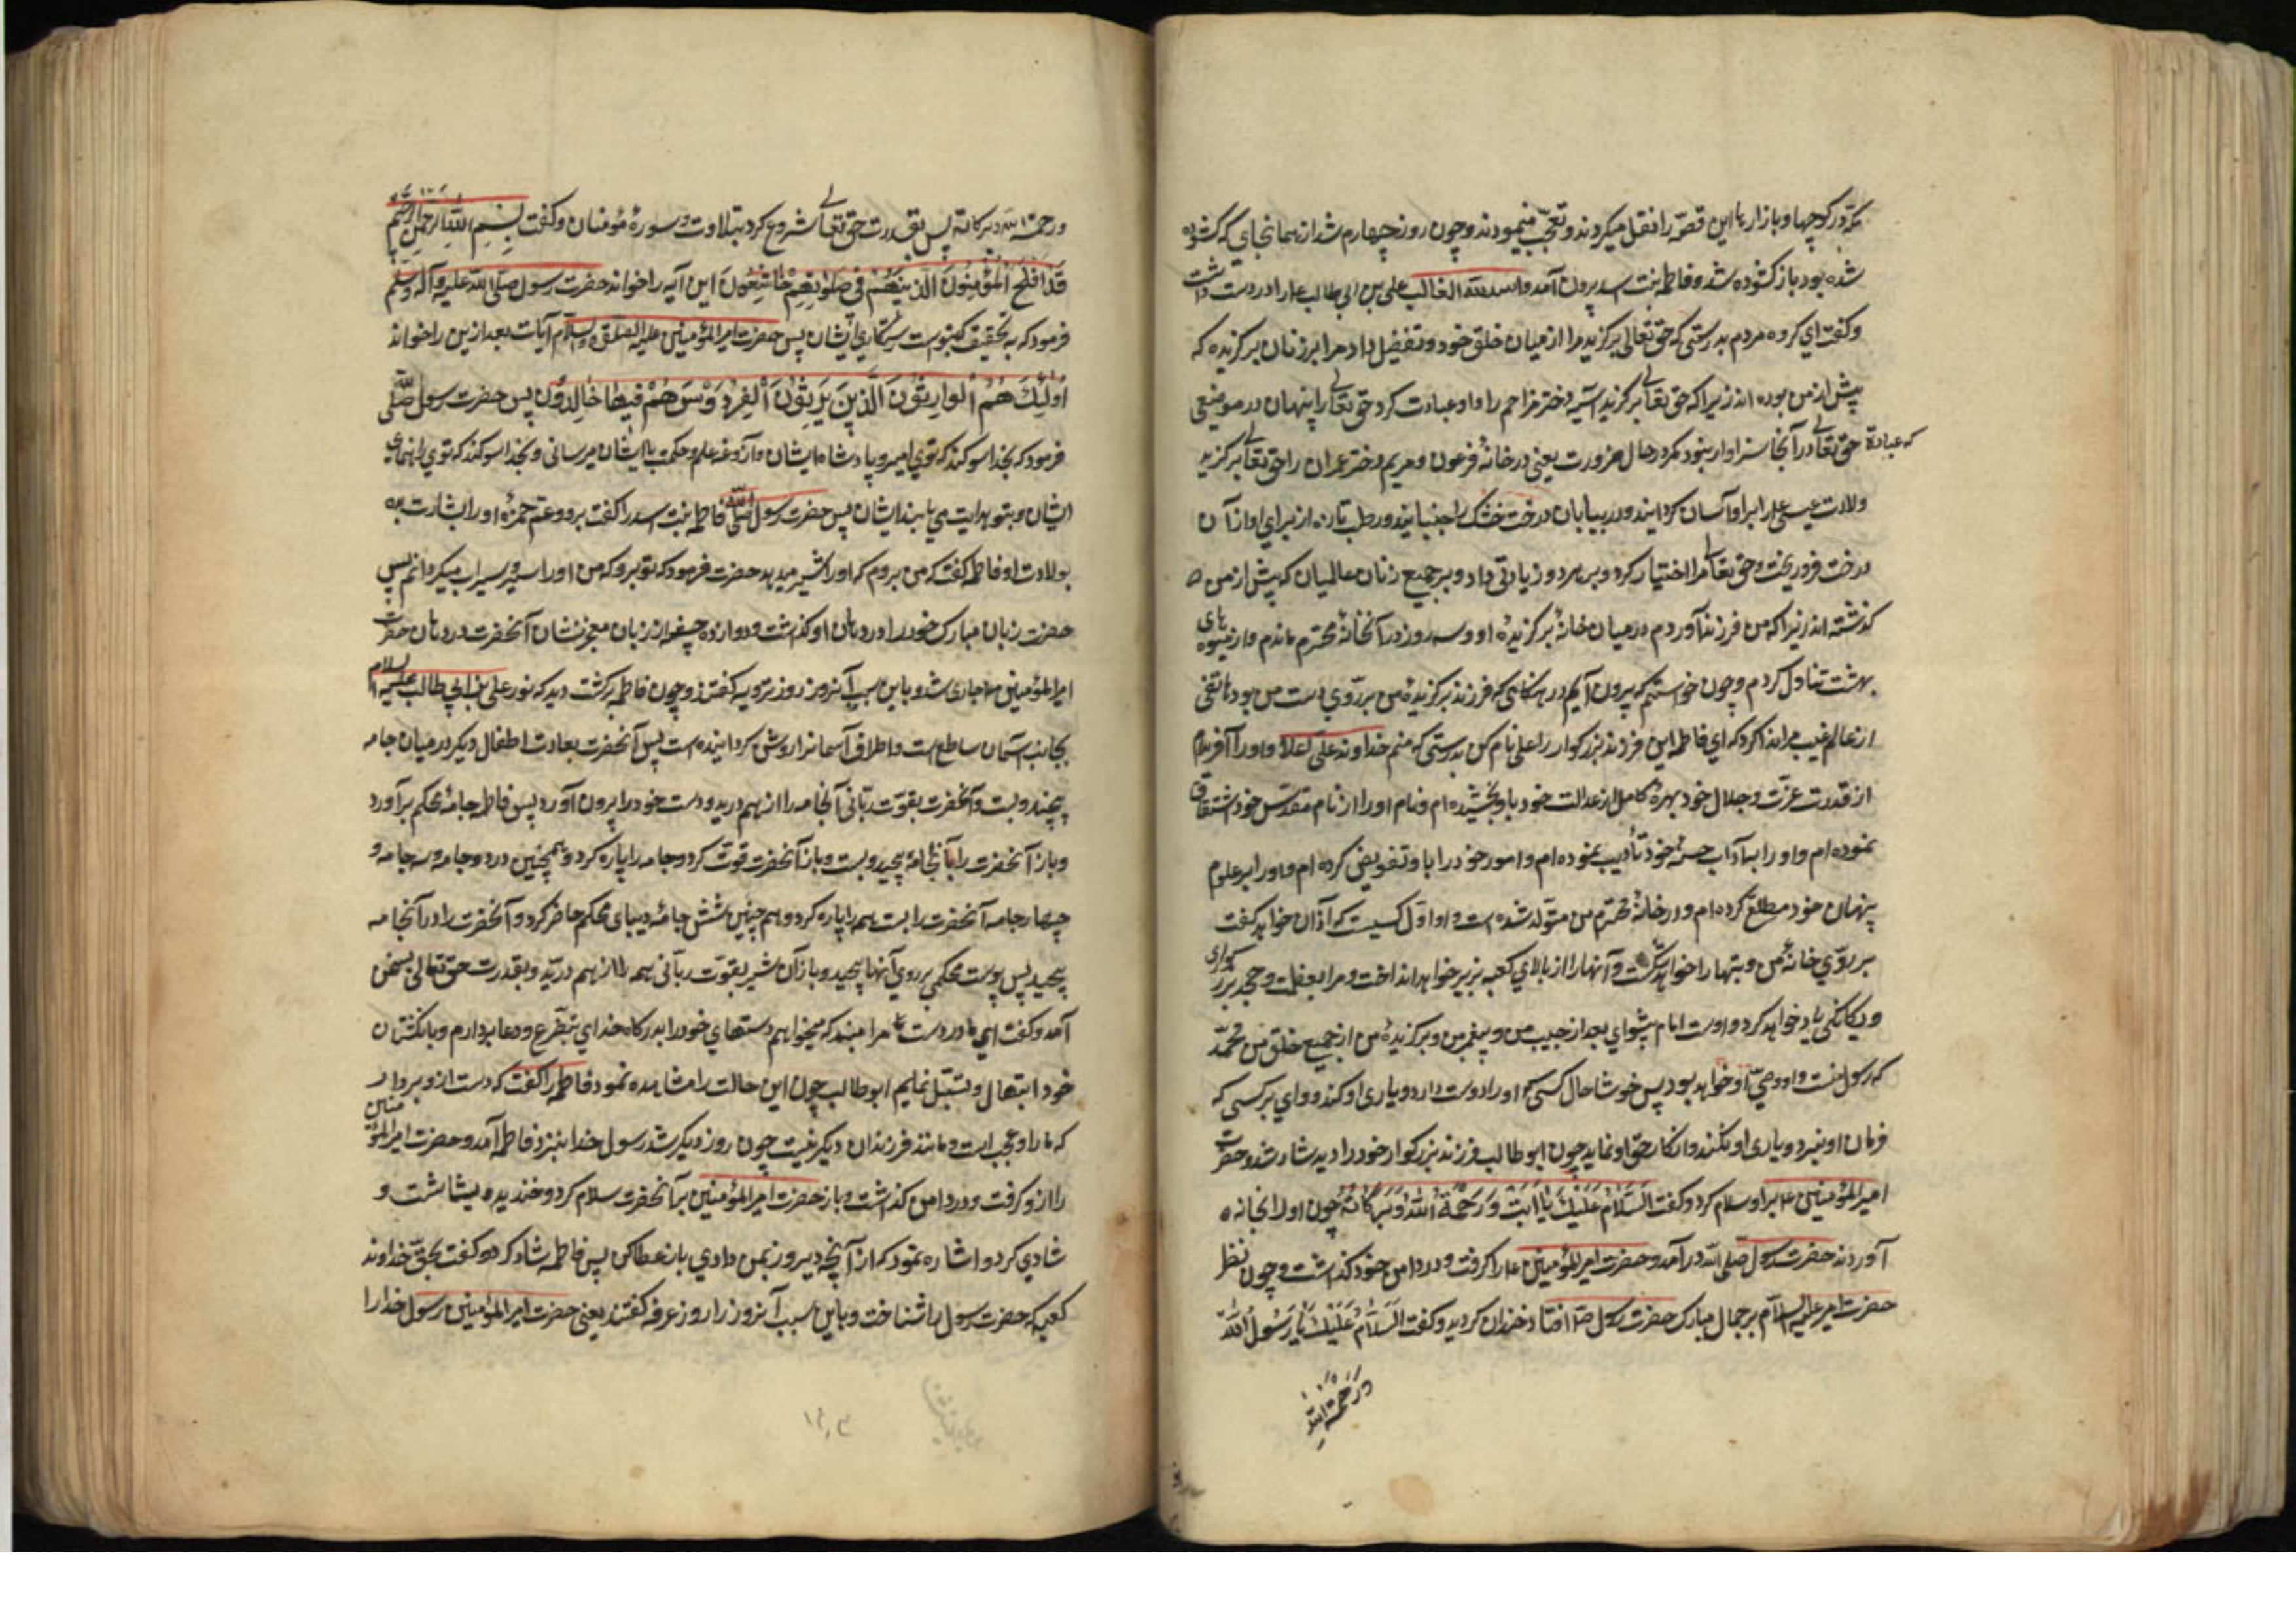 مکه در کوچها و بازارها این قصه را نقل میکردند و تعجب مینمودند و چون روز چهارم شد از همانجای که کشوده
شده بود باز کشوده شد و فاطمه بنت اسد بیرون آمد و اسد الله الغالب علی بن ابی طالب ع را در دست داشت
و کفت ای کروه مردم بدرستی که حق تعالی برکزید مرا از میان خلق خود و تفضیل داد مرا بر زنان برکزیده که
پیش از من بوده اند زیرا که حق تعالی برکزید آسیه دختر مزاحم را و او عبادت کرد حق تعالی را پنهان در موضعی
که عبادة حق تعالی در آنجا سزاوار نبود مکر در حال ضرورت یعنی در خانهٔ فرعون و مریم دختر عمران را حق تعالی برکزید
و ولادت عیسی ع را بر او آسان کردانید و در بیابان درخت خشک را جنبانید و رطب تازه از برای او از آن
درخت فرو ریخت و حق تعالی مرا اختیار کرد و بر هر دو زیادتی داد و بر جمیع زنان عالمیان که پیش از من
کذشته اند زیرا که من فرزند آوردم در میان خانهٔ برکزیدهٔ او و سه روز در آنخانهٔ محترم ماندم و از میوه های
بهشت تناول کردم و چون خواستم که بیرون آیم در هنکامی که فرزند برکزیدهٔ من بر روی دست من بود هاتفی
از عالم غیب مرا ندا کرد که ای فاطمه این فرزند بزرکوار را علی نام کن بدرستی که منم خداوند علی اعلا و او را آفریده ام
از قدرت عزت و جلال خود بهرهٔ کامل از عدالت خود باو بخشیده ام و نام او را از نام مقدس خود اشتقاق
نموده ام و او را بآداب حسنهٔ خود تأدیب نموده ام و امور خود را باو تفویض کرده ام و او را بر علوم
پنهان خود مطلع کرده ام و در خانهٔ محترم من متولد شده است و او اول کسیست که آذان خواهد کفت
بر روی خانهٔ من و بتها را خواهد شکست و آنها را از بالای کعبه بزیر خواهد انداخت و مرا بعظمت و مجد و بزرکواری
و یکانکی یاد خواهد کرد و اوست امام پیشوای بعد از حبیب من و پیغمبر من و برکزیدهٔ من از جمیع خلق من محمد
که رسول منست و او وصی او خواهد بود پس خوشا حال کسی که او را دوست دارد و یاری او کند و وای بر کسی که
فرمان او نبرد و یاری او نکند و انکار حق او نماید چون ابو طالب فرزند بزرکوار خود را دید شاد شد و حضرت
امیر المؤمنین ع بر او سلام کرد و کفت السَّلَامُ عَلَیْكَ یَا اَبَتْ وَرَحْمَةُ اللهِ وَبَرَکَاتُهُ چون او را بخانه
آوردند حضرت رسول صلی الله در آمد و حضرت امیر المؤمنین ع را کرفت و در دامن خود کذاشت و چون نظر
حضرت امیر علیه السلام بر جمال مبارک حضرت رسول ص افتاد خندان کردید و کفت السَّلَامُ عَلَیْكَ یَا رَسُولُ اللهِ
وَرَحْمَةُ اللهِ
ورحمة الله وبرکاته پس بقدرت حق تعالی شروع کرد بتلاوت سورهٔ مؤمنان و کفت بِسْمِ اللهِ الرَّحْمنِ الرَّحِیمِ
قَدْ اَفْلَحَ الْمُؤْمِنُونَ الَّذِینَ هُمْ فِی صَلَوتِهِمْ خَاشِعُونَ این آیه را خواند حضرت رسول صلی الله علیه و آله وسلم
فرمود که به تحقیق که بتوست رستکاری ایشان پس حضرت امیر المؤمنین علیه الصلوة والسلام آیات بعد ازین را خواند
اُولٰئِكَ هُمُ الْوَارِثُونَ الَّذِینَ یَرِثُونَ الْفِرْدَوْسَ هُمْ فِیهَا خَالِدُونَ پس حضرت رسول صلی الله
فرمود که بخدا سوکند که توی امیر و پادشاه ایشان و آزوغهٔ علم و حکمت بایشان میرسانی و بخدا سوکند که توی راهنمای
ایشان و بتو هدایت می یابند ایشان پس حضرت رسول صلی الله فاطمه بنت اسد را کفت برو و عم حمزه او را بشارت ده
بولادت او فاطمه کفت که من بروم که او را شیر میدهد حضرت فرمود که تو برو که من او را سیر و سیراب میکردانم پس
حضرت زبان مبارک خود را در دهان او کذاشت و دوازده چشمه از زبان معجز نشان آنحضرت در دهان حضرت
امیر المؤمنین ع جاری شد و باین سبب آنروز را روز ترویه کفتند و چون فاطمه برکشت دید که نور علی بن ابی طالب علیه السلام
بجانب آسمان ساطع است و اطراف آسمان را روشن کردانیده است پس آنحضرت بعادت اطفال دیکر در میان جامه
پیچید و بست و آنحضرت بقوت ربانی آنجامه را از هم درید و دست خود را بیرون آورد پس فاطمه جامهٔ محکم برآورد
و باز آنحضرت را بآنجامه پیچید و بست و باز آنحضرت قوت کرد و جامه را پاره کرد و همچنین در دو جامه و سه جامه و
چهار جامه آنحضرت را بست همه را پاره کرد و هم چنین شش جامهٔ دیبای محکم حاضر کرد و آنحضرت را در آنجامه
پیچید پس پوست محکمی بر روی آنها پیچید و باز آن شیر بقوت ربانی همه را از هم درید و بقدرت حق تعالی بسخن
آمد و کفت ای مادر دست مرا مبند که میخواهم دستهای خود را بدرکاه خدای بتضرع و دعا بردارم و بانکشتان
خود ابتهال و تبتل نمایم ابو طالب چون این حالت را مشاهده نمود فاطمه را کفت که دست از او بردار
که ما را و عجب است و مانند فرزندان دیکر نیست چون روز دیکر شد رسول خدا بنزد فاطمه آمد و حضرت امیر المؤمنین
را ازو کرفت و در دامن کذاشت و باز حضرت امیر المؤمنین بر آنحضرت سلام کرد و خندید و بشاشت و
شادی کرد و اشاره نمود که از آنچه دیروز بمن دادی باز عطا کن پس فاطمه شاد کرد و کفت بحق خداوند
کعبه که حضرت رسول را شناخت و باین سبب آنروز را روز عرفه کفتند یعنی حضرت امیر المؤمنین رسول خدا را